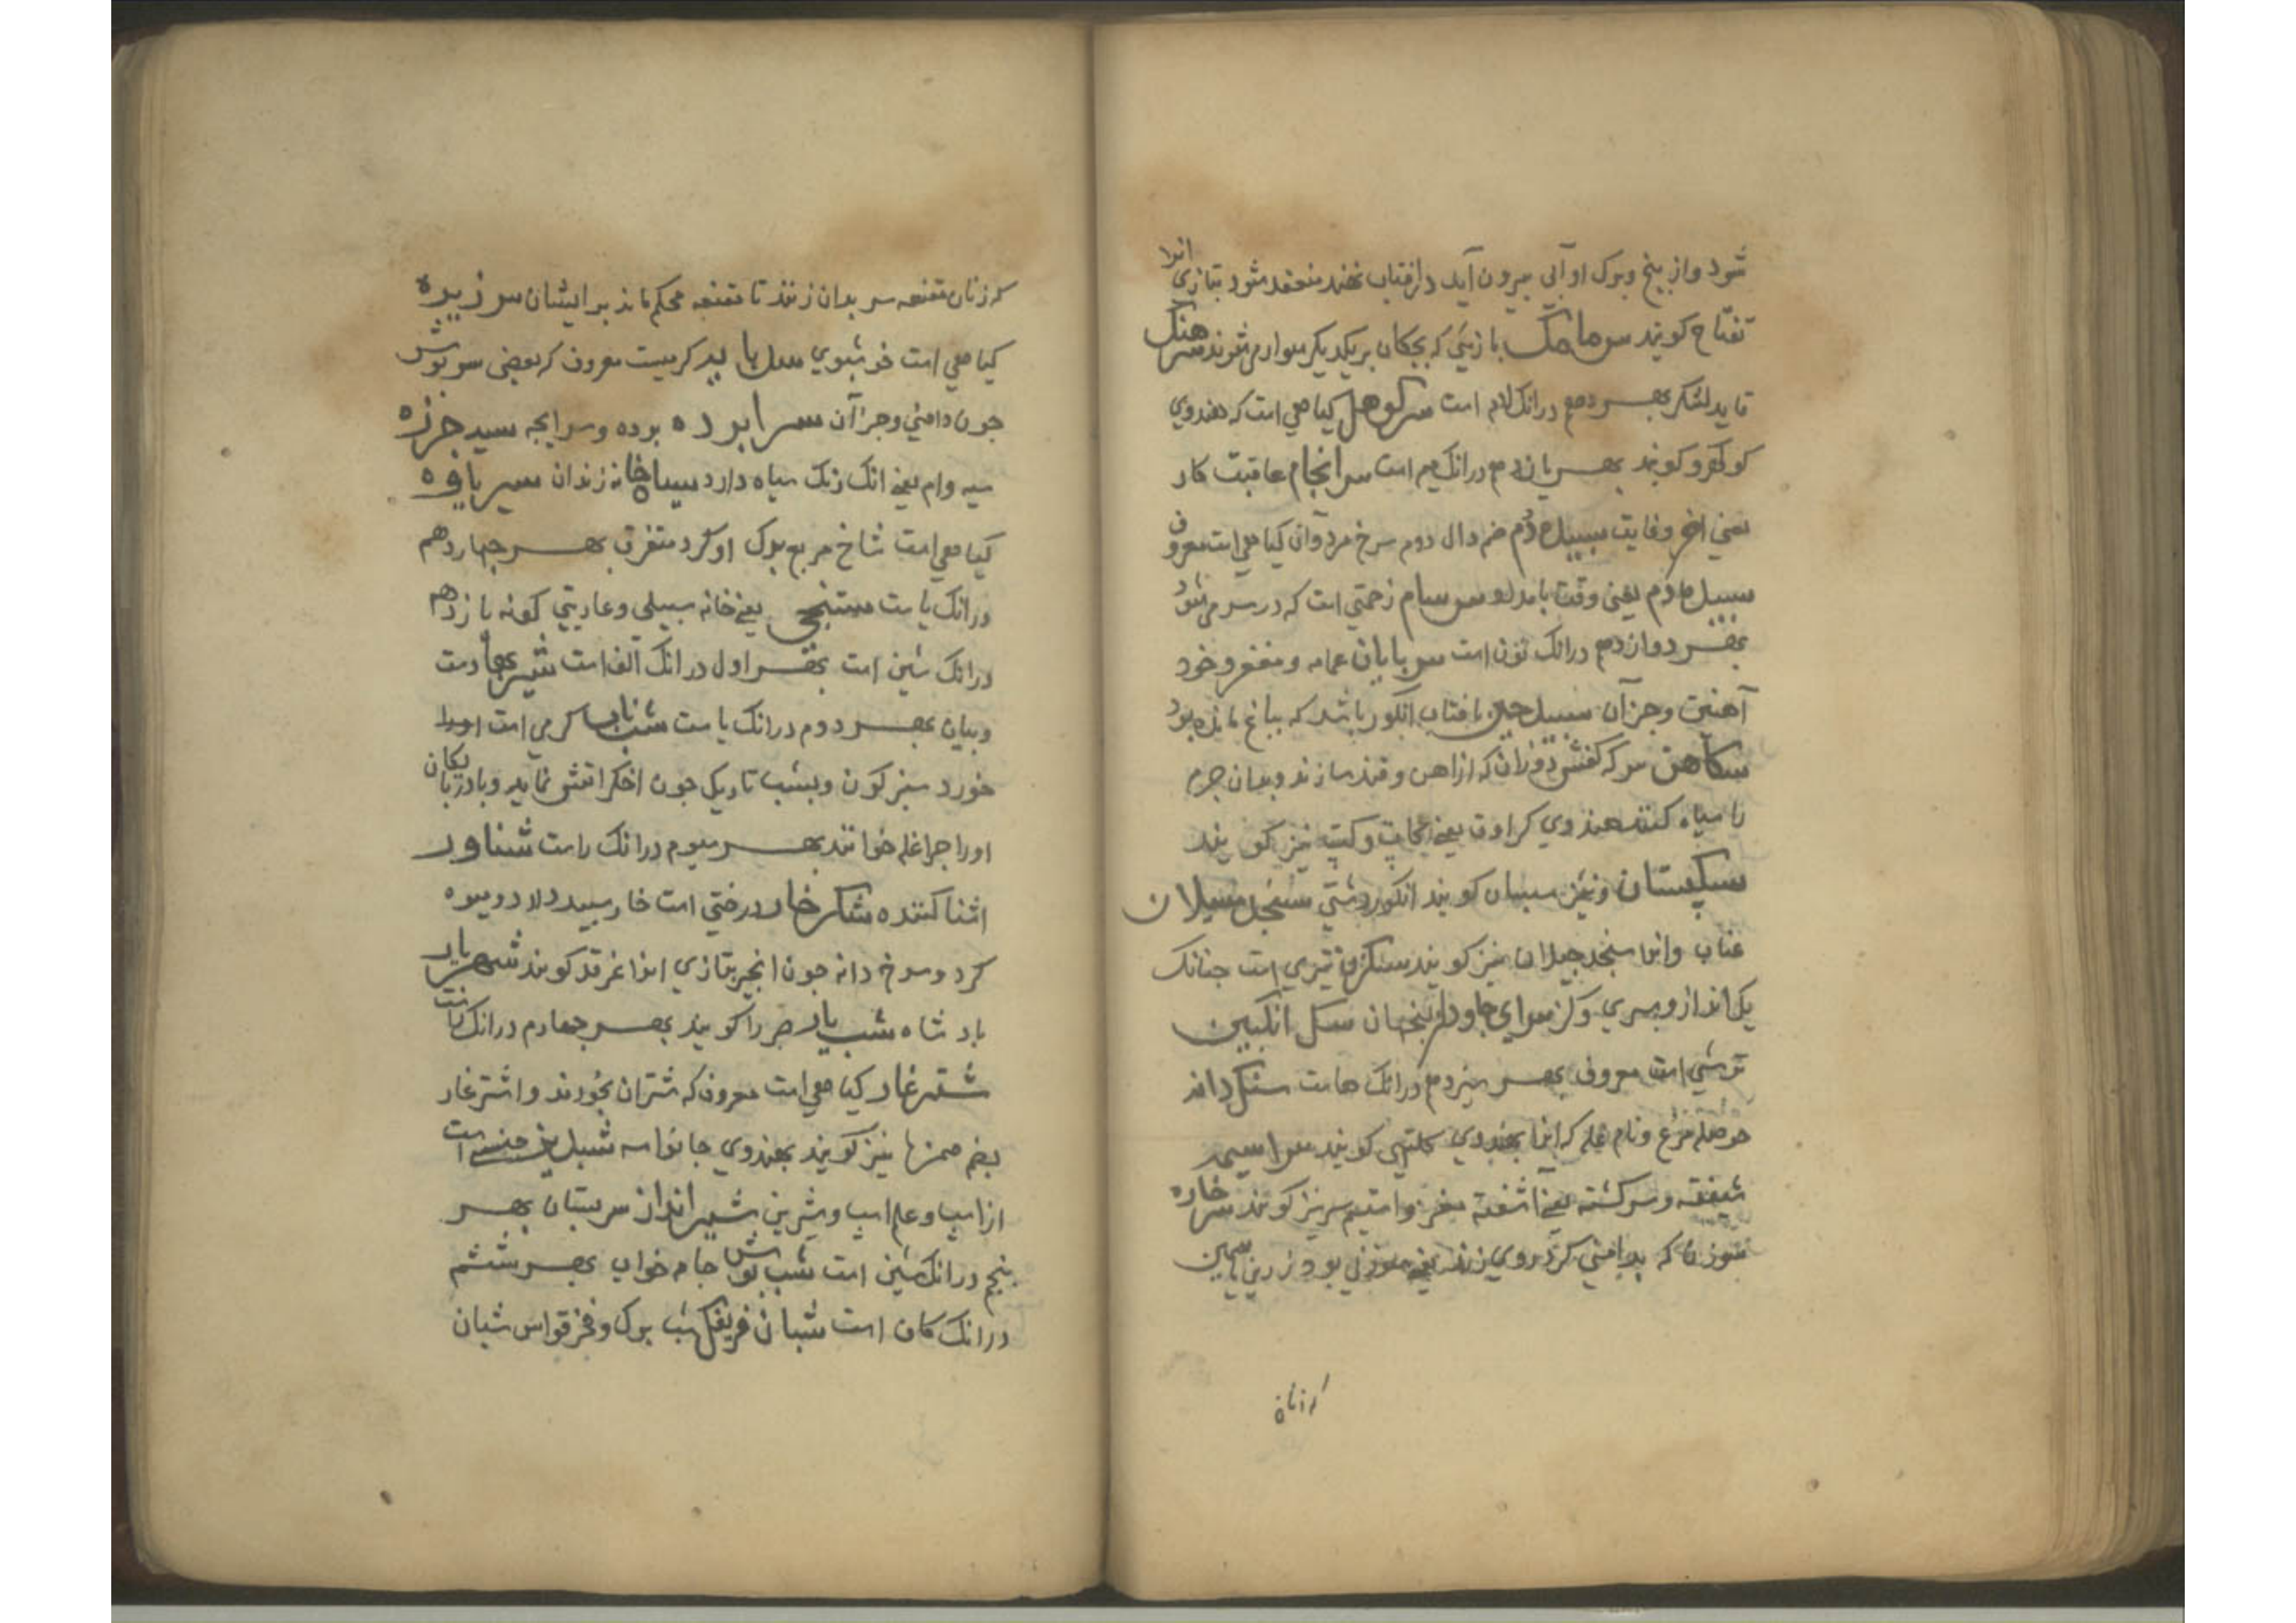 شود واز بیخ وبرک او آبی بیرون آید دافتاب نهند منعقد شود بتازی انرا
تفتاح کویند سرمامک بازیئی که بچکان بریکدیکر سوار می شوند سرهنک
قاید لشکر بهر دهم درانک لام است سرکوهل کیاهی است که هندوی
کویند بهر یازدهم درانک میم است سرانجام عاقبت کار
یعنی اخر وغایت سبیده دم ضم دال دوم سرخ مرد وآن کیاهی است معروف
سبیده دم یعنی وقت بامداد سرسام زحمتی است که در سر می شود
بهر دوازدهم درانک نون است سربایان عمامه ومغفر وخود
آهنین وجز آن سبیدجین بافتاب انکور باشد که بباغ مانده بود
سکاهن سرکه کفش دوزان که از اهن وقند سازند وبدان جرم
را سیاه کنند هندوی یعنی نیز کویند
سبکستان ونیز سبستان کویند انکور دشتی سنجد سیلان
عناب وانرا سنجد جیلان نیز کویند تیری است جنانک
یک انداز وسری وکز سرای جاودان بنجهان سک انکبین
ترشی است معروف بهر سیزدهم درانک هاست سنکدانه
حوصله مرغ ونام غله که انرا بهندوی کلتهی کویند سراسیمه
شیفته وسرکشته یعنی اشفته مغز واستیم سر نیز کویند سرخاره
سوزن که بدامنی کرد روی زنند یعنی سوزنی بود زرین یا سیمین
که زنان
که زنان مقنعه سر بدان زنند تا مقنعه محکم ماند بر ایشان سر زیره
کیاهی است خوشبوی سربایه کرمیست معروف که بعضی سربوش
جون دامنی وجز آن سرابرده برده وسرایجه سیه جرزه
سیه وام یعنی انک رنک سیاه دارد سیاه خانه زندان سیر یافوه
کیاهی است شاخ مربع برک او کرد متفرق بهر جهاردهم
درانک یاست ستنجی یعنی خانه سبیلی وعاریتی کونه یازدهم
درانک شین است بهر اول درانک الف است شیربها دست
وبیان بهر دوم درانک باست شب تاب کرمی است اورا
خورد سبز کون وبشب تاریک جون اخکر اتش نماید وبادزبانکان
اورا جراغله خوانند بهر سیوم درانک راست شناور
اشنا کننده شکرخار درختی است خار سبید دارد ومیوه
کرد وسرخ دانه جون انجیر بتازی انرا غرقد کویند شهریار
بادشاه شب یار صبر را کویند بهر جهارم درانک زاست
شترغاز کیاهی است معروف که شتران بخورند واشترغاز
بضم همزها نیز کویند بهندوی جانواسه شبدیز جنسیست
از اسب وعلم اسب وشیرین شیرانداز سربستان بهر
بنجم درانک شین است شب بوش جامه خواب بهر ششم
درانک کاف است شبان فریبک شب برک وفخر قواس شبان